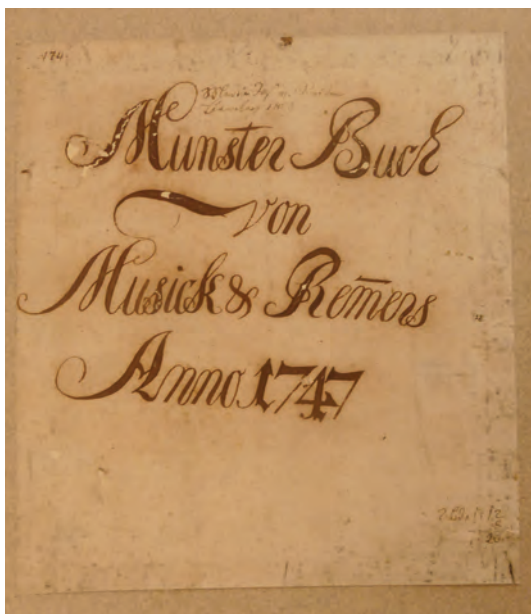 174
Munster Buch
von
Musick & Rem̄ers
Anno 1747
20